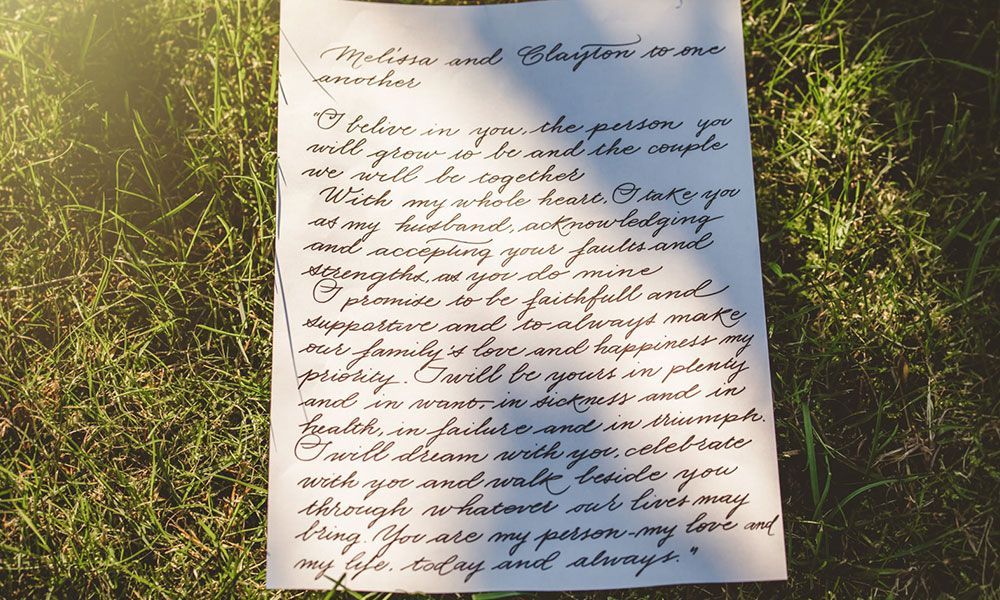 Melissa and Clayton to one
another
"I belive in you, the person you
will grow to be and the couple
we will be together
With my whole heart, I take you
as my husband, acknowledging
and accepting your faults and
strengths, as you do mine
I promise to be faithfull and
supportive and to always make
our family's love and happiness my
priority. I will be yours in plenty
and in want, in sickness and in
health, in failure and in triumph.
I will dream with you, celebrate
with you and walk beside you
through whatever our lives may
bring. You are my person-my love and
my life, today and always."